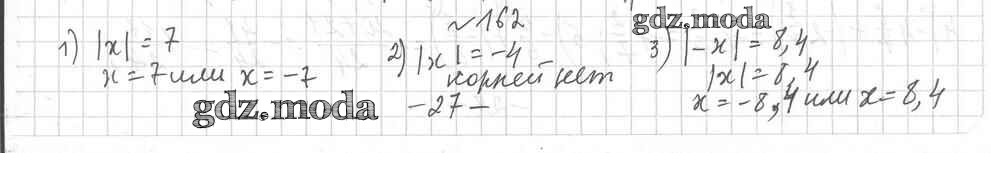 №162
gdz.moda
1) |x| = 7
x = 7 или x = -7
2) |x| = -4
корней нет
3) |-x| = 8,4
|x| = 8,4
x = -8,4 или x = 8,4
gdz.moda
-27-